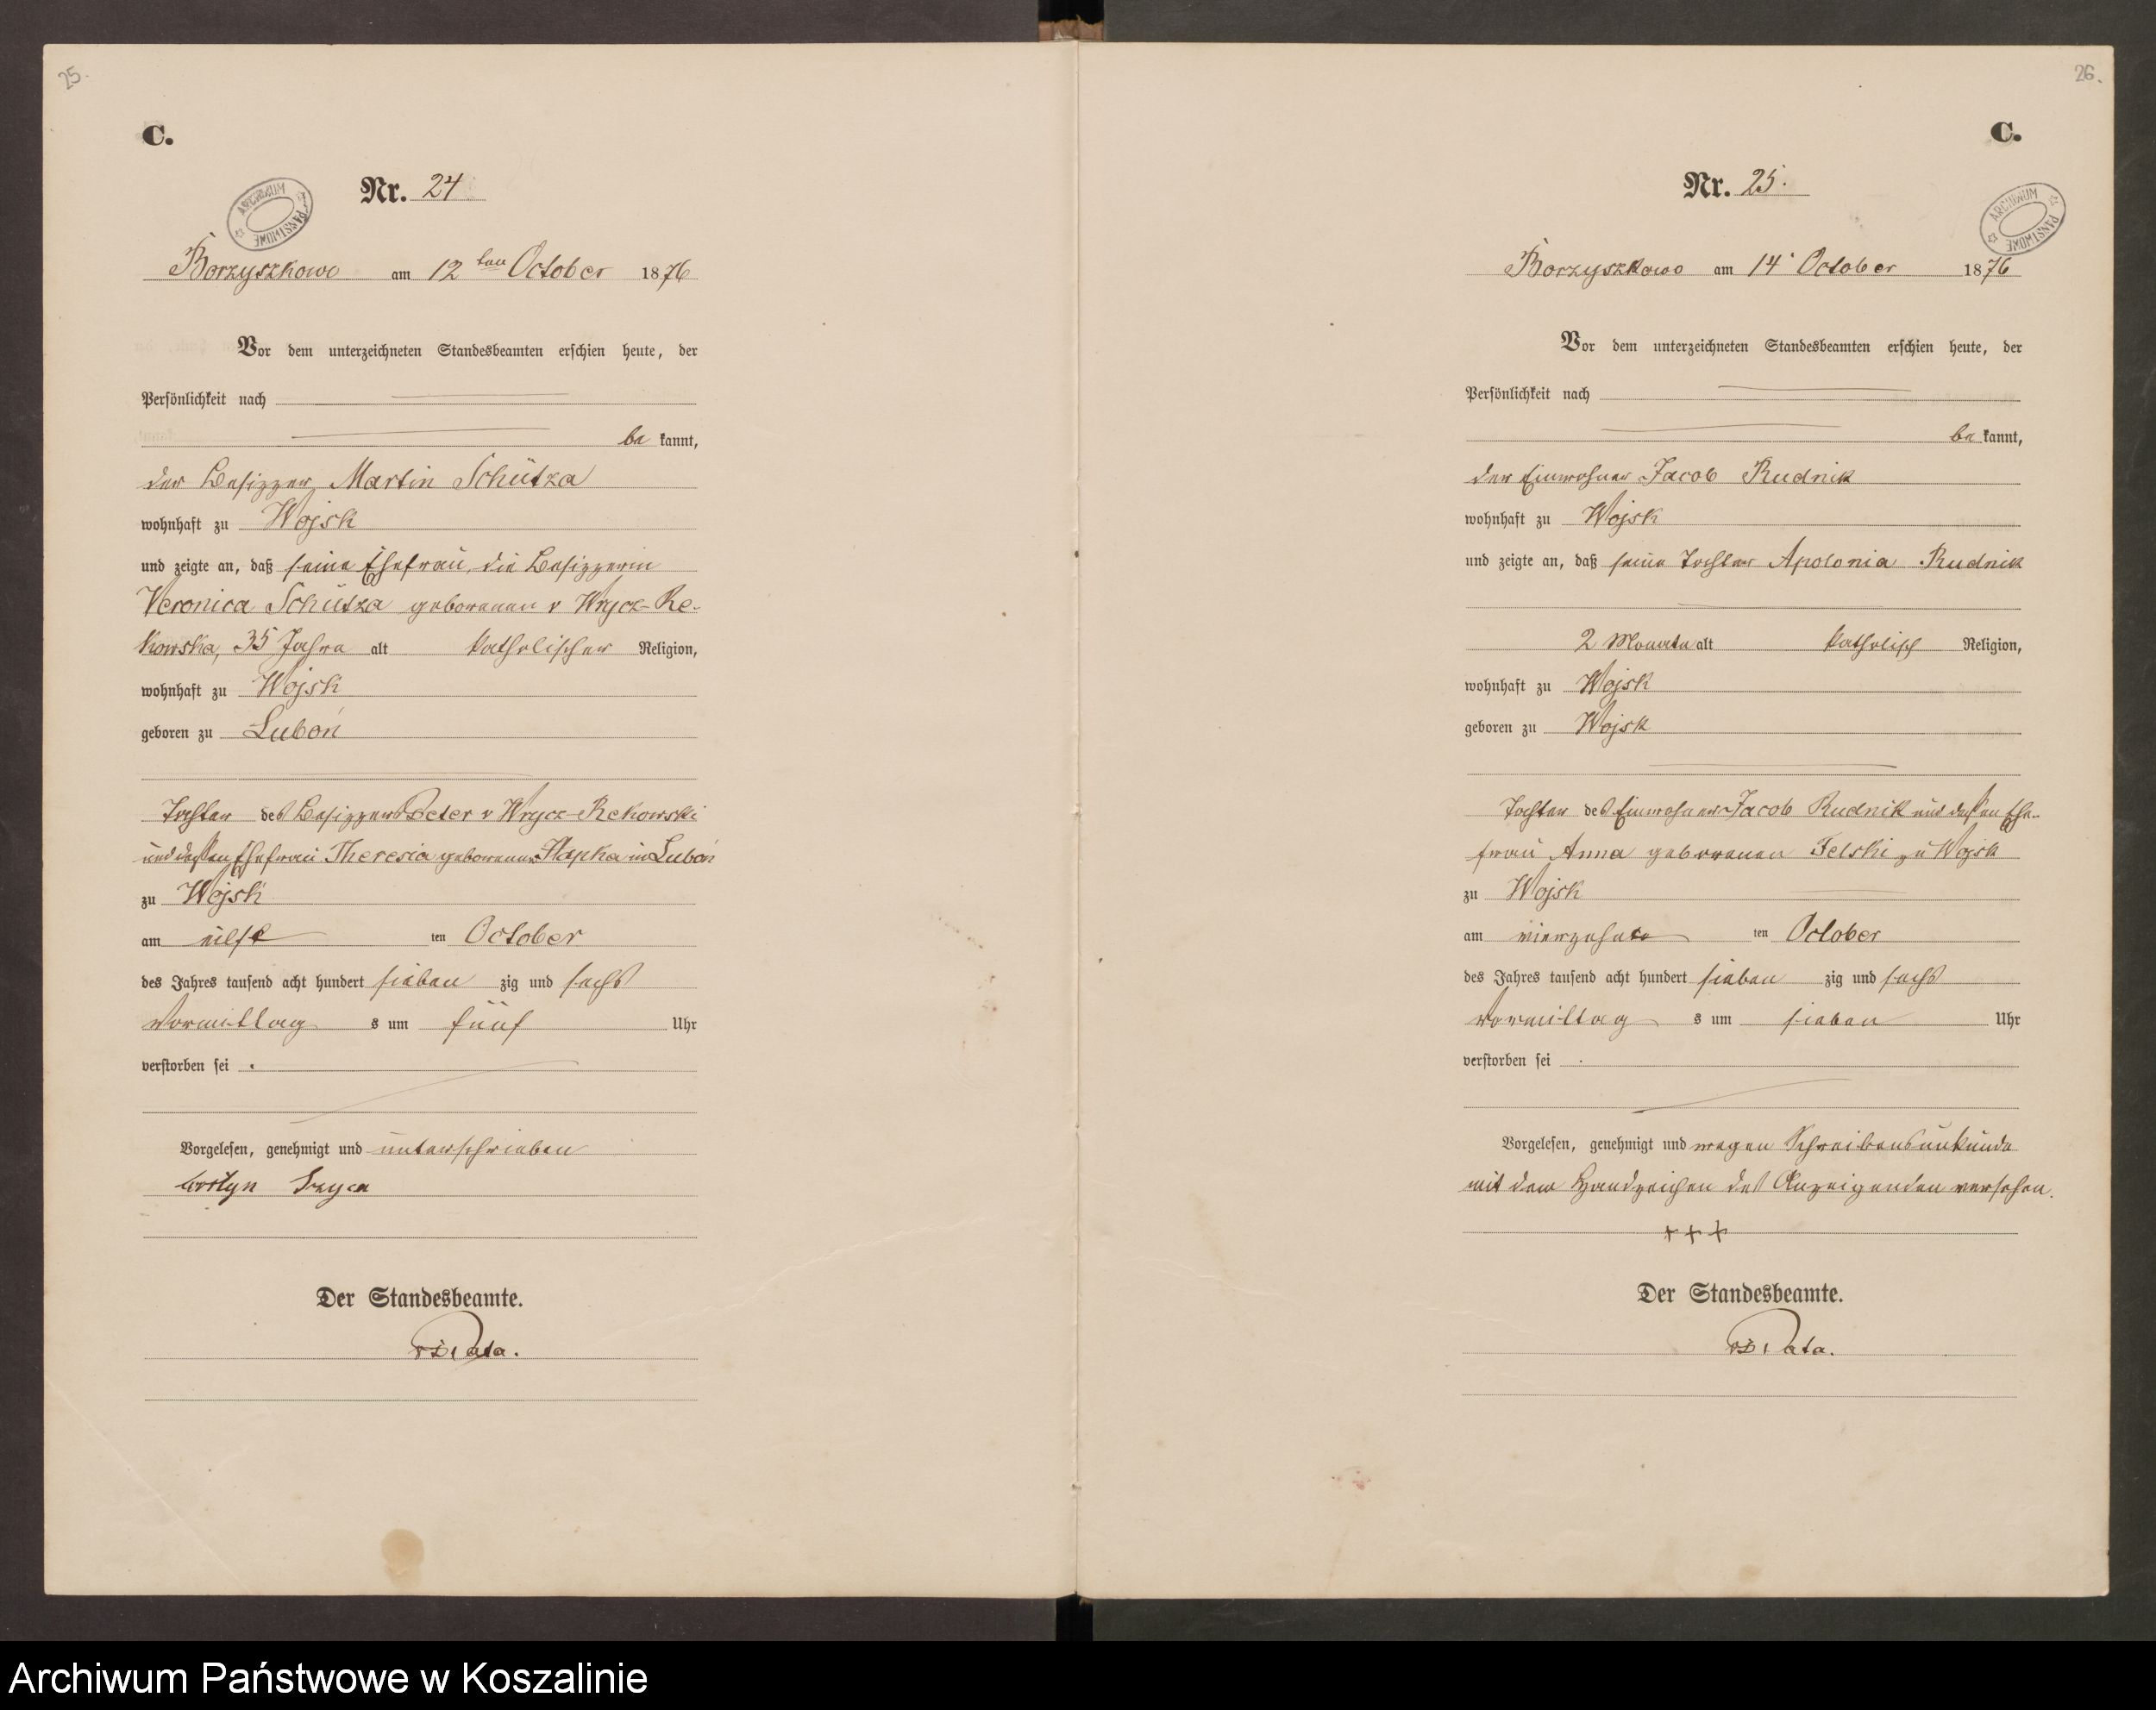 25.
C.
ARCHIWUM PAŃSTWOWE
Nr. 24
Borzyszkowo am 12ten October 1876
Vor dem unterzeichneten Standesbeamten erschien heute, der
Persönlichkeit nach
be kannt,
der Besizzer Martin Schütza
wohnhaft zu Wojsk
und zeigte an, daß seine Ehefrau, die Besizzerin
Veronica Schütza geborenen v Wrycz-Re-
kowska, 35 Jahre alt katholischer Religion,
wohnhaft zu Wojsk
geboren zu Luboń
Tochter des Besizzers Peter v Wrycz-Rekowski
und dessen Ehefrau Theresia geborenen in Luboń
zu Wojsk
am eilft ten October
des Jahres tausend acht hundert sieben zig und sechs
Vormittag s um fünf Uhr
verstorben sei .
Vorgelesen, genehmigt und unterschrieben
Der Standesbeamte.
26.
C.
ARCHIWUM PAŃSTWOWE
Nr. 25.
Borzyszkowo am 14. October 1876
Vor dem unterzeichneten Standesbeamten erschien heute, der
Persönlichkeit nach
be kannt,
der Einwohner Jacob Rudnik
wohnhaft zu Wojsk
und zeigte an, daß seine Tochter Apolonia Rudnik
2 Monate alt katholisch Religion,
wohnhaft zu Wojsk
geboren zu Wojsk
Tochter des Einwohner Jacob Rudnik und dessen Ehe-
frau Anna geborenen Felski zu Wojsk
zu Wojsk
am vierzehnte ten October
des Jahres tausend acht hundert sieben zig und sechs
Vormittag s um sieben Uhr
verstorben sei .
Vorgelesen, genehmigt und wegen Schreibensunkunde
mit dem Handzeichen des Anzeigenden versehen.
+++
Der Standesbeamte.
Archiwum Państwowe w Koszalinie